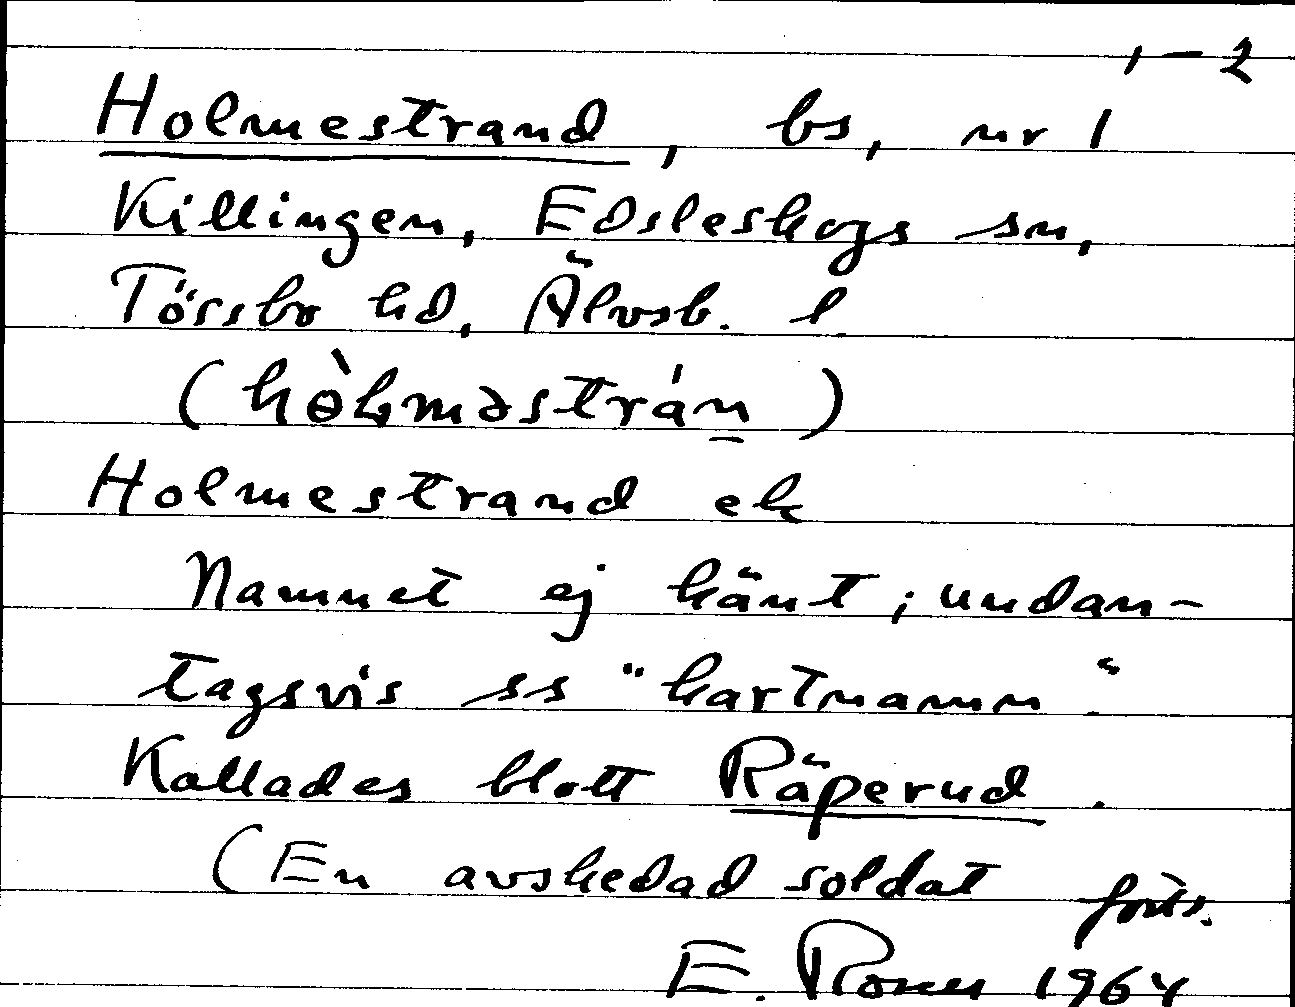 1-2
Holmestrand, bs, nr 1
Killingen, Edsleskogs sn,
Tössbo hd, Älvsb. l
Holmestrand ek
Namnet ej känt; undan-
tagsvis ss "kartnamn".
Kallades blott Räperud.
(En avskedad soldat forts.
E. Rosell 1964